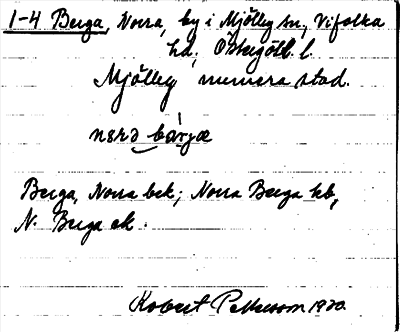 1-4 Berga, Norra, by i Mjölby sn, Vifolka
hd, Östergötl. l.
Mjölby numera stad.
barjæ
Berga, Norra bek; Norra Berga kb,
N. Berga ek.
Robert Petterson 1920.